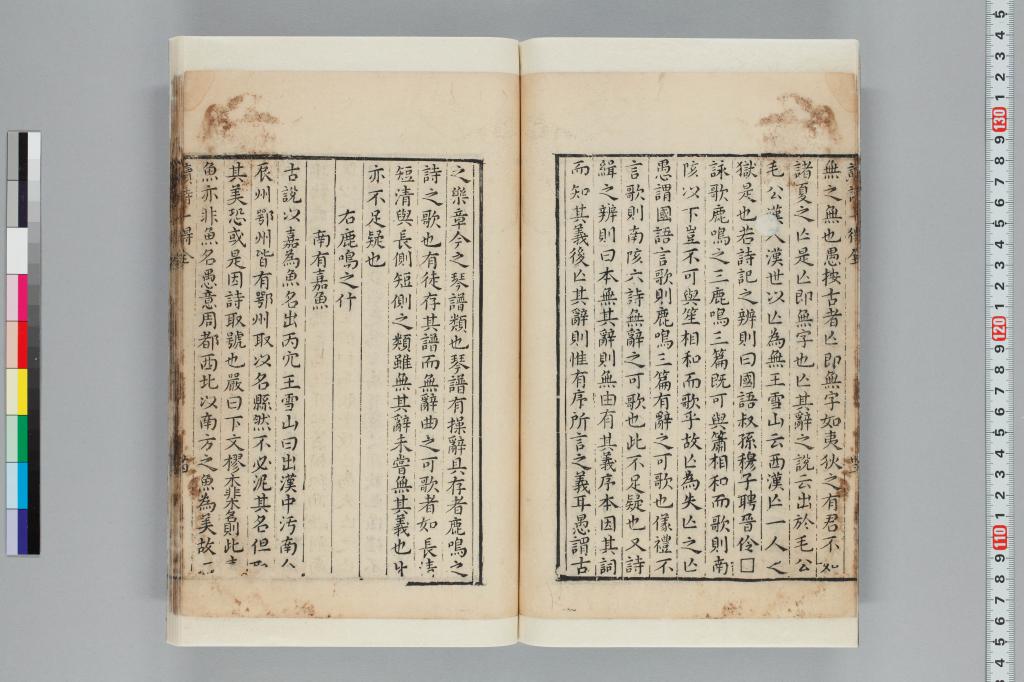 無之無也愚按古者亾即無字如夷狄之有君不如
諸夏之亾是亾即無字也亾其辭之說云出於毛公
毛公漢人漢世以亾為無王雪山云西漢亾一人
獄是也若詩記之辨則曰國語叔孫穆子聘晉伶□
詠歌鹿鳴之三鹿鳴三篇既可與簫相和而歌則南
陔以下豈不可與笙相和而歌乎故亾為失亾之亾
愚謂國語言歌則鹿鳴三篇有辭之可歌也儀禮不
言歌則南陔六詩無辭之可歌也此不足疑也又詩
緝之辨則曰本無其辭則無由有其義序本因其詞
而知其義後亾其辭則惟有序所言之義耳愚謂古
之樂章今之琴譜類也琴譜有操辭具存者鹿鳴之
詩之歌也有徒存其譜而無辭曲之可歌者如長清
短清與長側短側之類雖無其辭未嘗無其義也
亦不足疑也
右鹿鳴之什
南有嘉魚
古說以嘉為魚名出丙穴王雪山曰出漢中沔南
辰州鄂州皆有鄂州取以名縣然不必泥其名但
其美恐或是因詩取號也嚴曰下文樛木非木名則此
魚亦非魚名愚意周都西北以南方之魚為美故
讀詩一得全